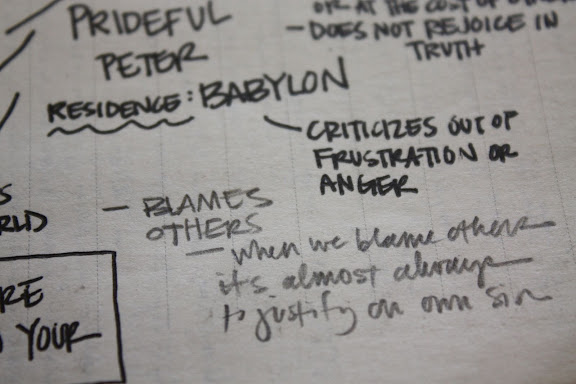 OR AT THE COST OF
PRIDEFUL
- DOES NOT REJOICE IN
TRUTH
PETER
RESIDENCE: BABYLON
- CRITICIZES OUT OF
FRUSTRATION OR
ANGER
- BLAMES
OTHERS
- when we blame others
it's almost always
to justify our own sin
RE
YOUR